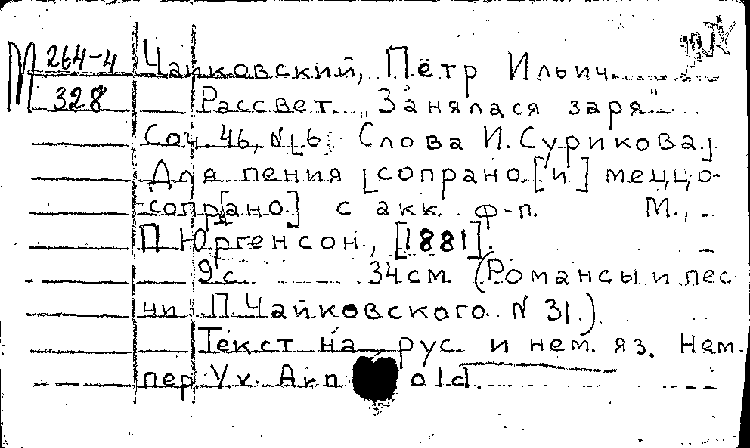 М 264-4
328
Чайковский, Пётр Ильич
Рассвет. "Занялася заря"
Соч. 46, №6. Слова И. Сурикова.
Для пения [сопрано [и] меццо-
сопр[ано] с акк. ф-п. М.,
П. Юргенсон, [1881].
9 с. 34 см. (Романсы и пес
ни П. Чайковского. N 31.)
Текст на рус. и нем. яз. Нем.
пер. Yv. Arn old.